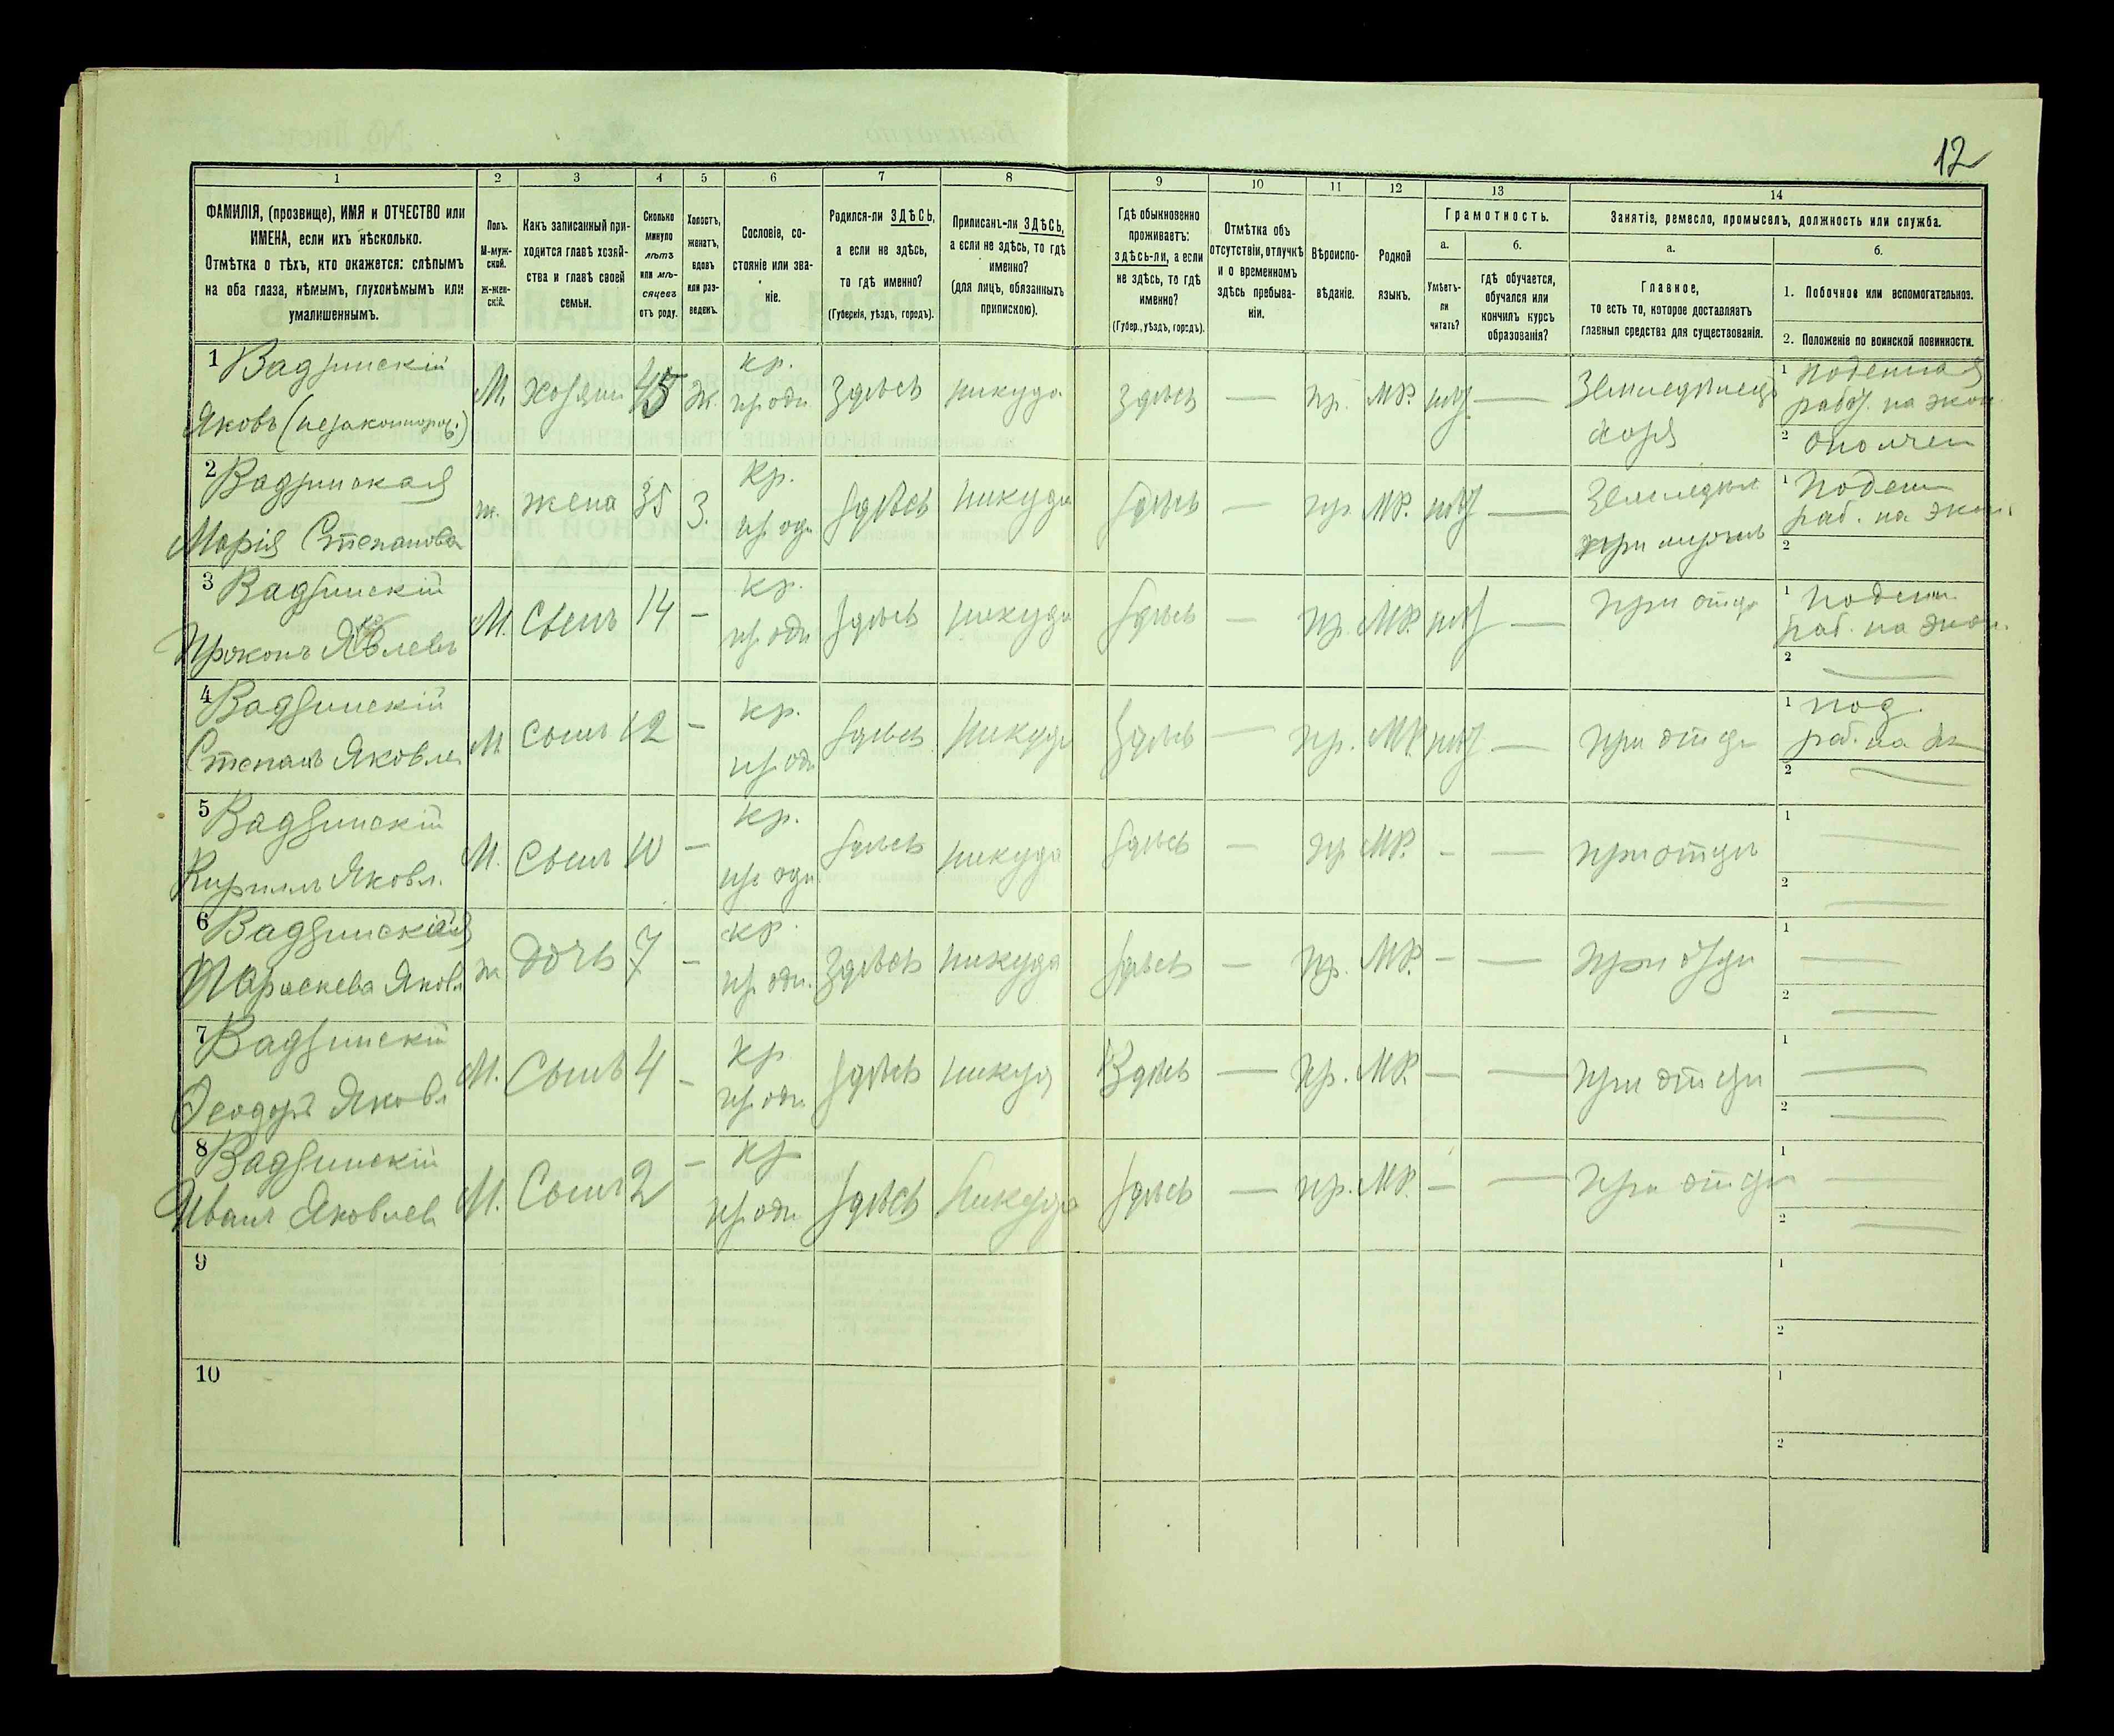 12
1 2 3 4 5 6 7 8 9 10 11 12 13 14
ФАМИЛІЯ, (прозвище), ИМЯ и ОТЧЕСТВО или
ИМЕНА, если ихъ нѣсколько.
Отмѣтка о тѣхъ, кто окажется: слѣпымъ
на оба глаза, нѣмымъ, глухонѣмымъ или
умалишеннымъ.
Полъ.
М-муж-
ской.
Ж-жен-
скій.
Какъ записанный при-
ходится главѣ хозяй-
ства и главѣ своей
семьи.
Сколько
минуло
лѣтъ
или мѣ-
сяцевъ
отъ роду.
Холостъ,
женатъ,
вдовъ
или раз-
веденъ.
Сословіе, со-
стояніе или зва-
ніе.
Родился-ли ЗДѢСЬ,
а если не здѣсь,
то гдѣ именно?
(Губернія, уѣздъ, городъ).
Приписанъ-ли ЗДѢСЬ,
а если не здѣсь, то гдѣ
именно?
(для лицъ, обязанныхъ
припискою).
Гдѣ обыкновенно
проживаетъ:
здѣсь-ли, а если
не здѣсь, то гдѣ
именно?
(Губер., уѣздъ, городъ).
Отмѣтка объ
отсутствіи, отлучкѣ
и о временномъ
здѣсь пребыва-
ніи.
Вѣроиспо-
вѣданіе.
Родной
языкъ.
Грамотность.
а. б.
Умѣетъ-
ли
читать?
гдѣ обучается,
обучался или
кончилъ курсъ
образованія?
Занятіе, ремесло, промыселъ, должность или служба.
а. б.
Главное,
то есть то, которое доставляетъ
главныя средства для существованія.
1. Побочное или вспомогательное.
2. Положеніе по воинской повинности.
1 Вадзинскій кр. 1 поденная
Яковъ (незаконнорож.) М. хозяин 45 ж. здѣсь никуда здѣсь — пр. МР. — Земледѣлец
хозя 2 ополчен
2 Вадзинская кр. 1 Поден
Марія Степанова ж. жена 35 З. здѣсь никуда здѣсь — пр. МР. — раб. на экон.
2
3 Вадзинскій кр. 1 поден
Прокопъ М. Сынъ 14 — здѣсь никуда здѣсь пр. МР. — при отцѣ раб. на экон.
2 —
4 Вадзинскій кр. 1 под.
Степанъ Яковле М сынъ 12 — здѣсь никуда здѣсь — пр. МР. — при отцѣ раб. на эк
2 —
5 Вадзинскій кр. 1 —
Кириллъ Яковл. М. Сынъ 10 — здѣсь никуда здѣсь — пр МР. - — при отцѣ
2 —
6 Вадзинская кр. 1 —
Параскева Яковл ж дочь 7 — здѣсь никуда здѣсь — пр. МР. — — при отцѣ
2 —
7 Вадзинскій кр 1 —
Феодоръ Яковл М. Сынъ 4 — здѣсь никуд здѣсь — пр. МР. — — при отцѣ
2 —
8 Вадзинскій кр 1 —
Иванъ Яковлев М. Сынъ 2 — здѣсь никуда здѣсь — пр. МР. — — при отцѣ
2 —
9 1
2
10 1
2